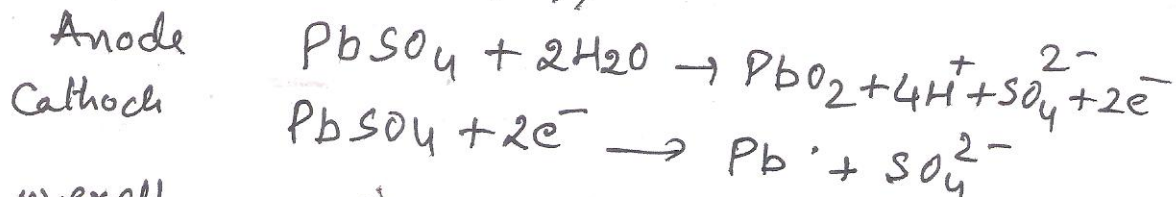 Anode PbSO₄ + 2H2O → PbO₂+4H⁺+SO₄²⁻+2e⁻
Cathoch PbSO4 +2e⁻ → Pb + SO₄²⁻